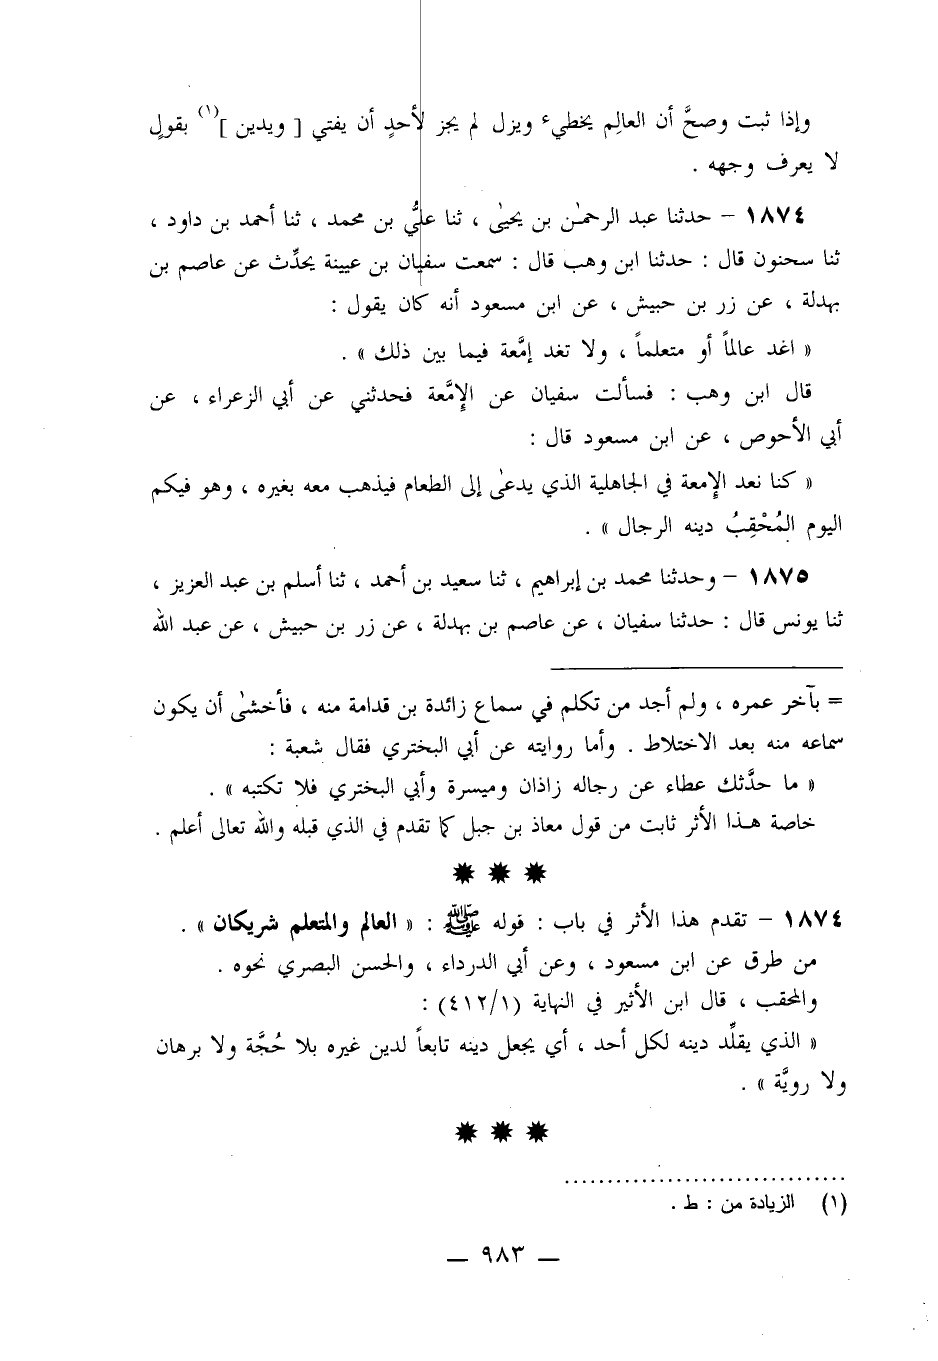 وإذا ثبت وصحَّ أن العالِم يخطيء ويزل لم يجز لأحدٍ أن يفتي [ ويدين ](١) بقولٍ
لا يعرف وجهه .
١٨٧٤ – حدثنا عبد الرحمٰن بن يحيىٰ ، ثنا عليُّ بن محمد ، ثنا أحمد بن داود ،
ثنا سحنون قال : حدثنا ابن وهب قال : سمعت سفيان بن عيينة يحدِّث عن عاصم بن
بهدلة ، عن زر بن حبيش ، عن ابن مسعود أنه كان يقول :
« اغد عالماً أو متعلماً ، ولا تغد إمَّعة فيما بين ذلك » .
قال ابن وهب : فسألت سفيان عن الإِمَّعة فحدثني عن أبي الزعراء ، عن
أبي الأحوص ، عن ابن مسعود قال :
« كنا نعد الإِمعة في الجاهلية الذي يدعىٰ إلى الطعام فيذهب معه بغيره ، وهو فيكم
اليوم المُحْقِبُ دينه الرجال » .
١٨٧٥ – وحدثنا محمد بن إبراهيم ، ثنا سعيد بن أحمد ، ثنا أسلم بن عبد العزيز ،
ثنا يونس قال : حدثنا سفيان ، عن عاصم بن بهدلة ، عن زر بن حبيش ، عن عبد الله
= بآخر عمره ، ولم أجد من تكلم في سماع زائدة بن قدامة منه ، فأخشىٰ أن يكون
سماعه منه بعد الاختلاط . وأما روايته عن أبي البختري فقال شعبة :
« ما حدَّثك عطاء عن رجاله زاذان وميسرة وأبي البختري فلا تكتبه » .
خاصة هـذا الأثر ثابت من قول معاذ بن جبل كما تقدم في الذي قبله والله تعالى أعلم .
١٨٧٤ – تقدم هذا الأثر في باب : قوله ﷺ : « العالم والمتعلم شريكان » .
من طرق عن ابن مسعود ، وعن أبي الدرداء ، والحسن البصري نحوه .
والمحقب ، قال ابن الأثير في النهاية (٤١٢/١) :
« الذي يقلِّد دينه لكل أحد ، أي يجعل دينه تابعاً لدين غيره بلا حُجَّة ولا برهان
ولا رويَّة » .
(١) الزيادة من : ط .
— ٩٨٣ —